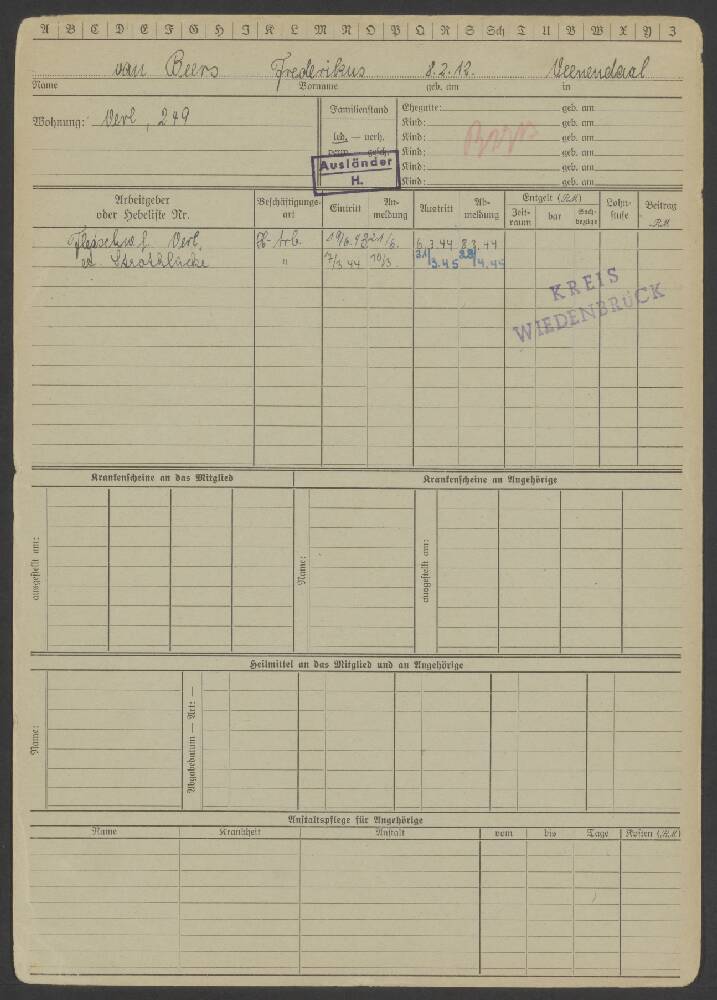 A B C D E F G H I K L M N O P Q R S Sch T U V W X Y Z
van Beers Frederikus 8.2.12. Veenendaal
Name Vorname geb. am in
Wohnung: Verl, 249
Familienstand
led. — verh.
verw. — gesch.
Ausländer
H.
Ehegatte: geb. am
Kind: geb. am
Kind: geb. am
Kind: geb. am
Kind: geb. am
Kind: geb. am
Arbeitgeber oder Hebeliste Nr. Beschäftigungsart Eintritt Anmeldung Austritt Abmeldung Entgelt (RM) Zeitraum bar Sachbezüge Lohnstufe Beitrag RM
Verl. H.-Arb. 21/6. 6.3.44 8.3.44
" 7/3 44 10/3. 31/3.45
KREIS
WIEDENBRÜCK
Krankenscheine an das Mitglied Krankenscheine an Angehörige
ausgestellt am: Name: ausgestellt am:
Heilmittel an das Mitglied und an Angehörige
Name: Abgabedatum — Art: —
Anstaltspflege für Angehörige
Name Krankheit Anstalt vom bis Tage Kosten (RM)